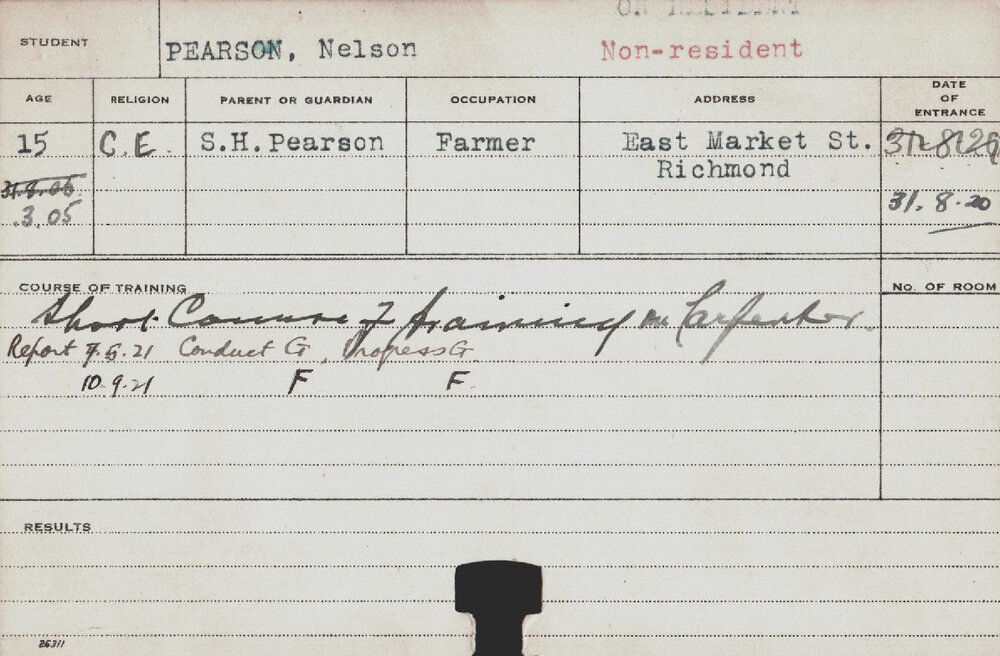 STUDENT
PEARSON, Nelson Non-resident
AGE RELIGION PARENT OR GUARDIAN OCCUPATION ADDRESS DATE OF ENTRANCE
15 C.E. S.H. Pearson Farmer East Market St. 31-8-20
Richmond
31.8.05 31.8.20
.3.05
COURSE OF TRAINING No. OF ROOM
Short Course of training as Carpenter.
Report 7.5.21 Conduct G, Progress G
10.9.21 F F.
RESULTS
26311